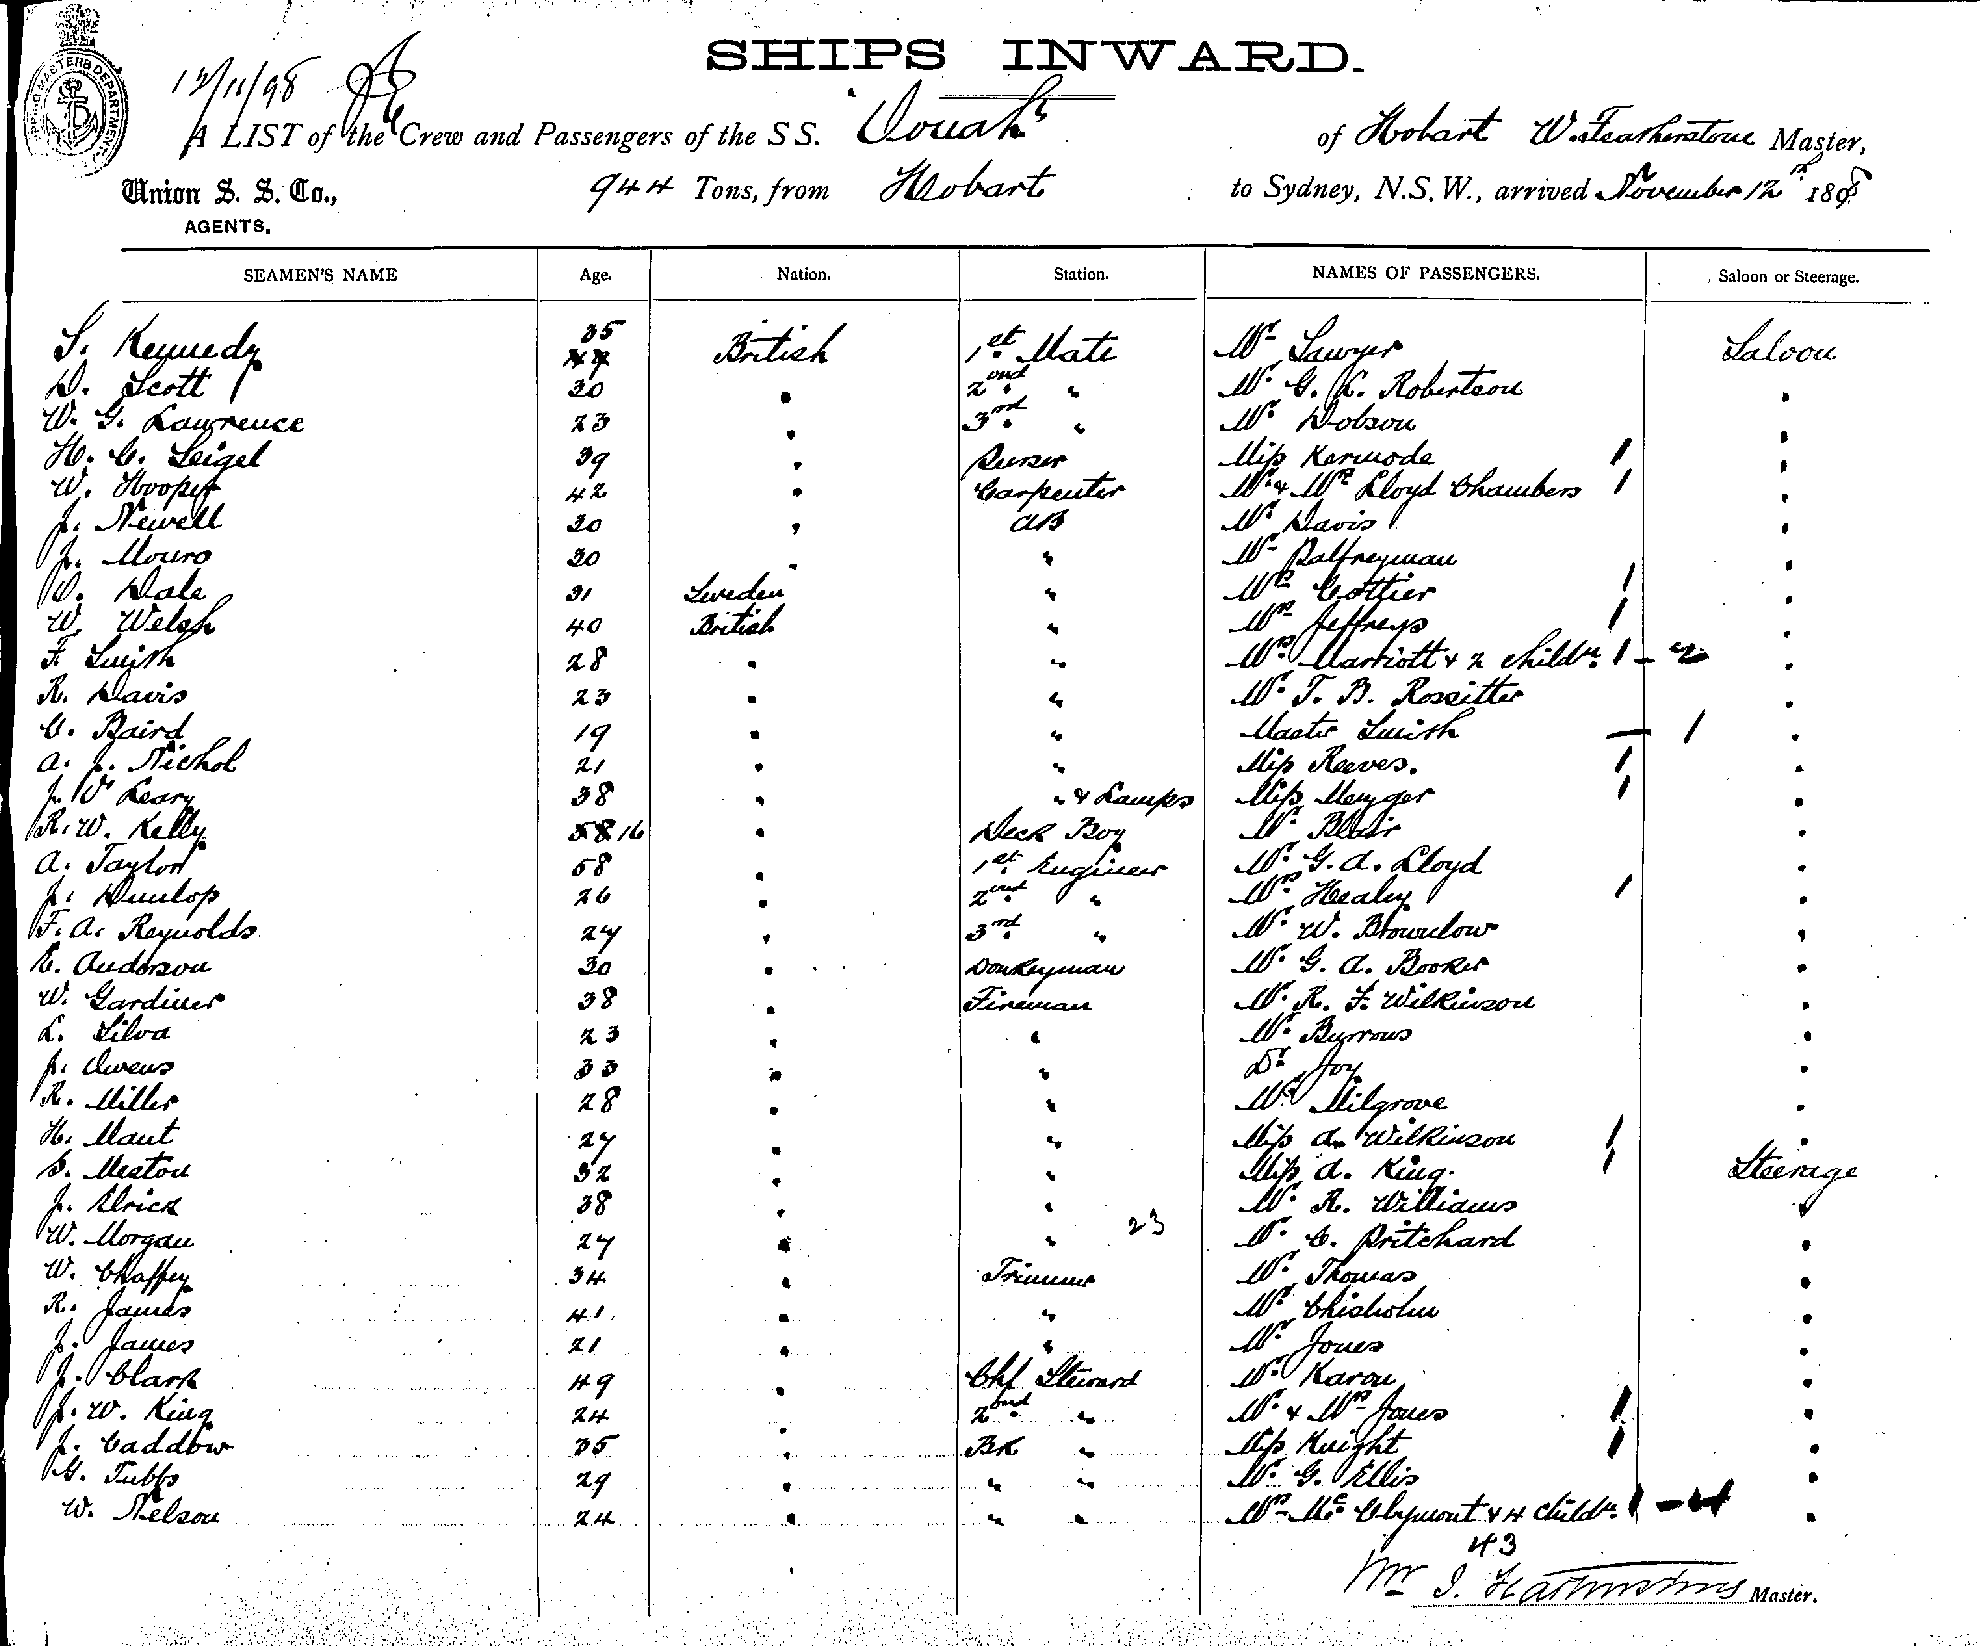 SHIPS INWARD.
12/11/98
A LIST of the Crew and Passengers of the S S. Oonah of Hobart W. Featherstone Master,
Union S. S. Co., 944 Tons, from Hobart to Sydney, N.S.W., arrived November 12th 1898
AGENTS.
SEAMEN'S NAME Age. Nation. Station. NAMES OF PASSENGERS. Saloon or Steerage.
S. Kennedy 35 British 1st Mate Mr Sawyer Saloon
D. Scott 30 " 2nd " Mr G. K. Robertson "
W. G. Lawrence 23 " 3rd " Mr Dobson "
H. C. Seigel 39 " Purser Miss Kermode 1 "
W. Hooper 42 " Carpenter Mr & Mrs Lloyd Chambers 1 "
J. Newell 30 " AB Mr Davis "
J. Mouro 30 " " Mr Palfreyman "
O. Dale 31 Sweden " Mrs Cottier 1 "
W. Welsh 40 British " Mrs Jeffreys 1 "
F. Smith 28 " " Mrs Marriott & 2 childn. 1 - 2 "
R. Davis 23 " " Mr T. B. Rossitter "
C. Baird 19 " " Master Smith - 1 "
A. J. Nichol 21 " " Miss Reeves. 1 "
J. O'Leary 38 " " & Lamps Miss 1 "
R. W. Kelly 16 " Deck Boy Mr Blair "
A. Taylor 58 " 1st Engineer Mr G. A. Lloyd "
J. Dunlop 26 " 2nd " Mrs Healey 1 "
F. A. Reynolds 27 " 3rd " Mr W. Brownlow "
C. Anderson 30 " Donkeyman Mr G. A. Booker "
W. Gardiner 38 " Fireman Mr R. F. Wilkinson "
L. Silva 23 " " Mr Burrows "
J. Owens 33 " " Dr Joy "
R. Miller 28 " " Mr Milgrove "
H. Maut 27 " " Miss A. Wilkinson 1 "
S. Meston 32 " " Miss A. King. 1 Steerage
J. Ulrick 38 " " Mr R. Williams "
W. Morgan 27 " " 23 Mr C. Pritchard "
W. Chaffey 34 " Trimmer Mr Thomas "
R. James 41 " " Mr Chisholm "
J. James 21 " " Mr Jones "
J. Clark 49 " Chf Steward Mr Karon "
J. W. King 24 " 2nd " Mr & Mrs Jones 1 "
J. Caddow 35 " BK " Miss Knight 1 "
G. Tubbs 29 " " " Mr G. Ellis "
W. Nelson 24 " " " Mrs McClymont & 4 childn. 1 - 4 "
43
Master.